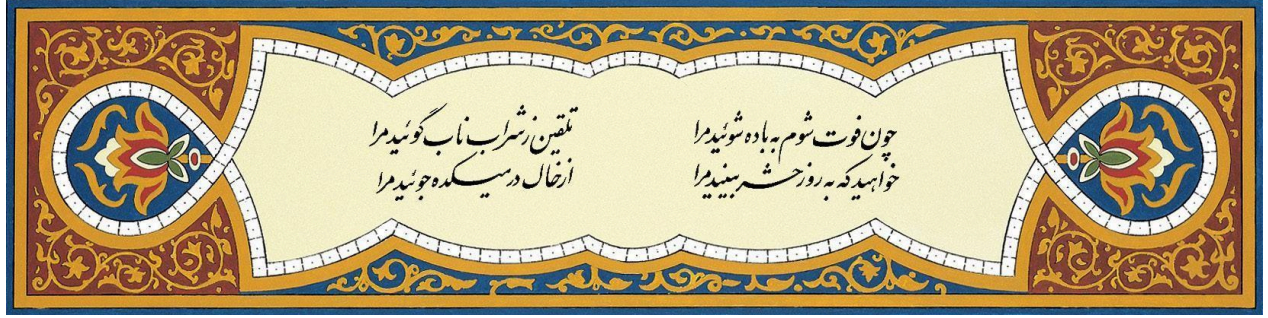 چون فوت شوم به باده شوئید مرا تلقین ز شراب ناب گوئید مرا
خواهید که به روز حشر بینید مرا از خال در میکده جوئید مرا